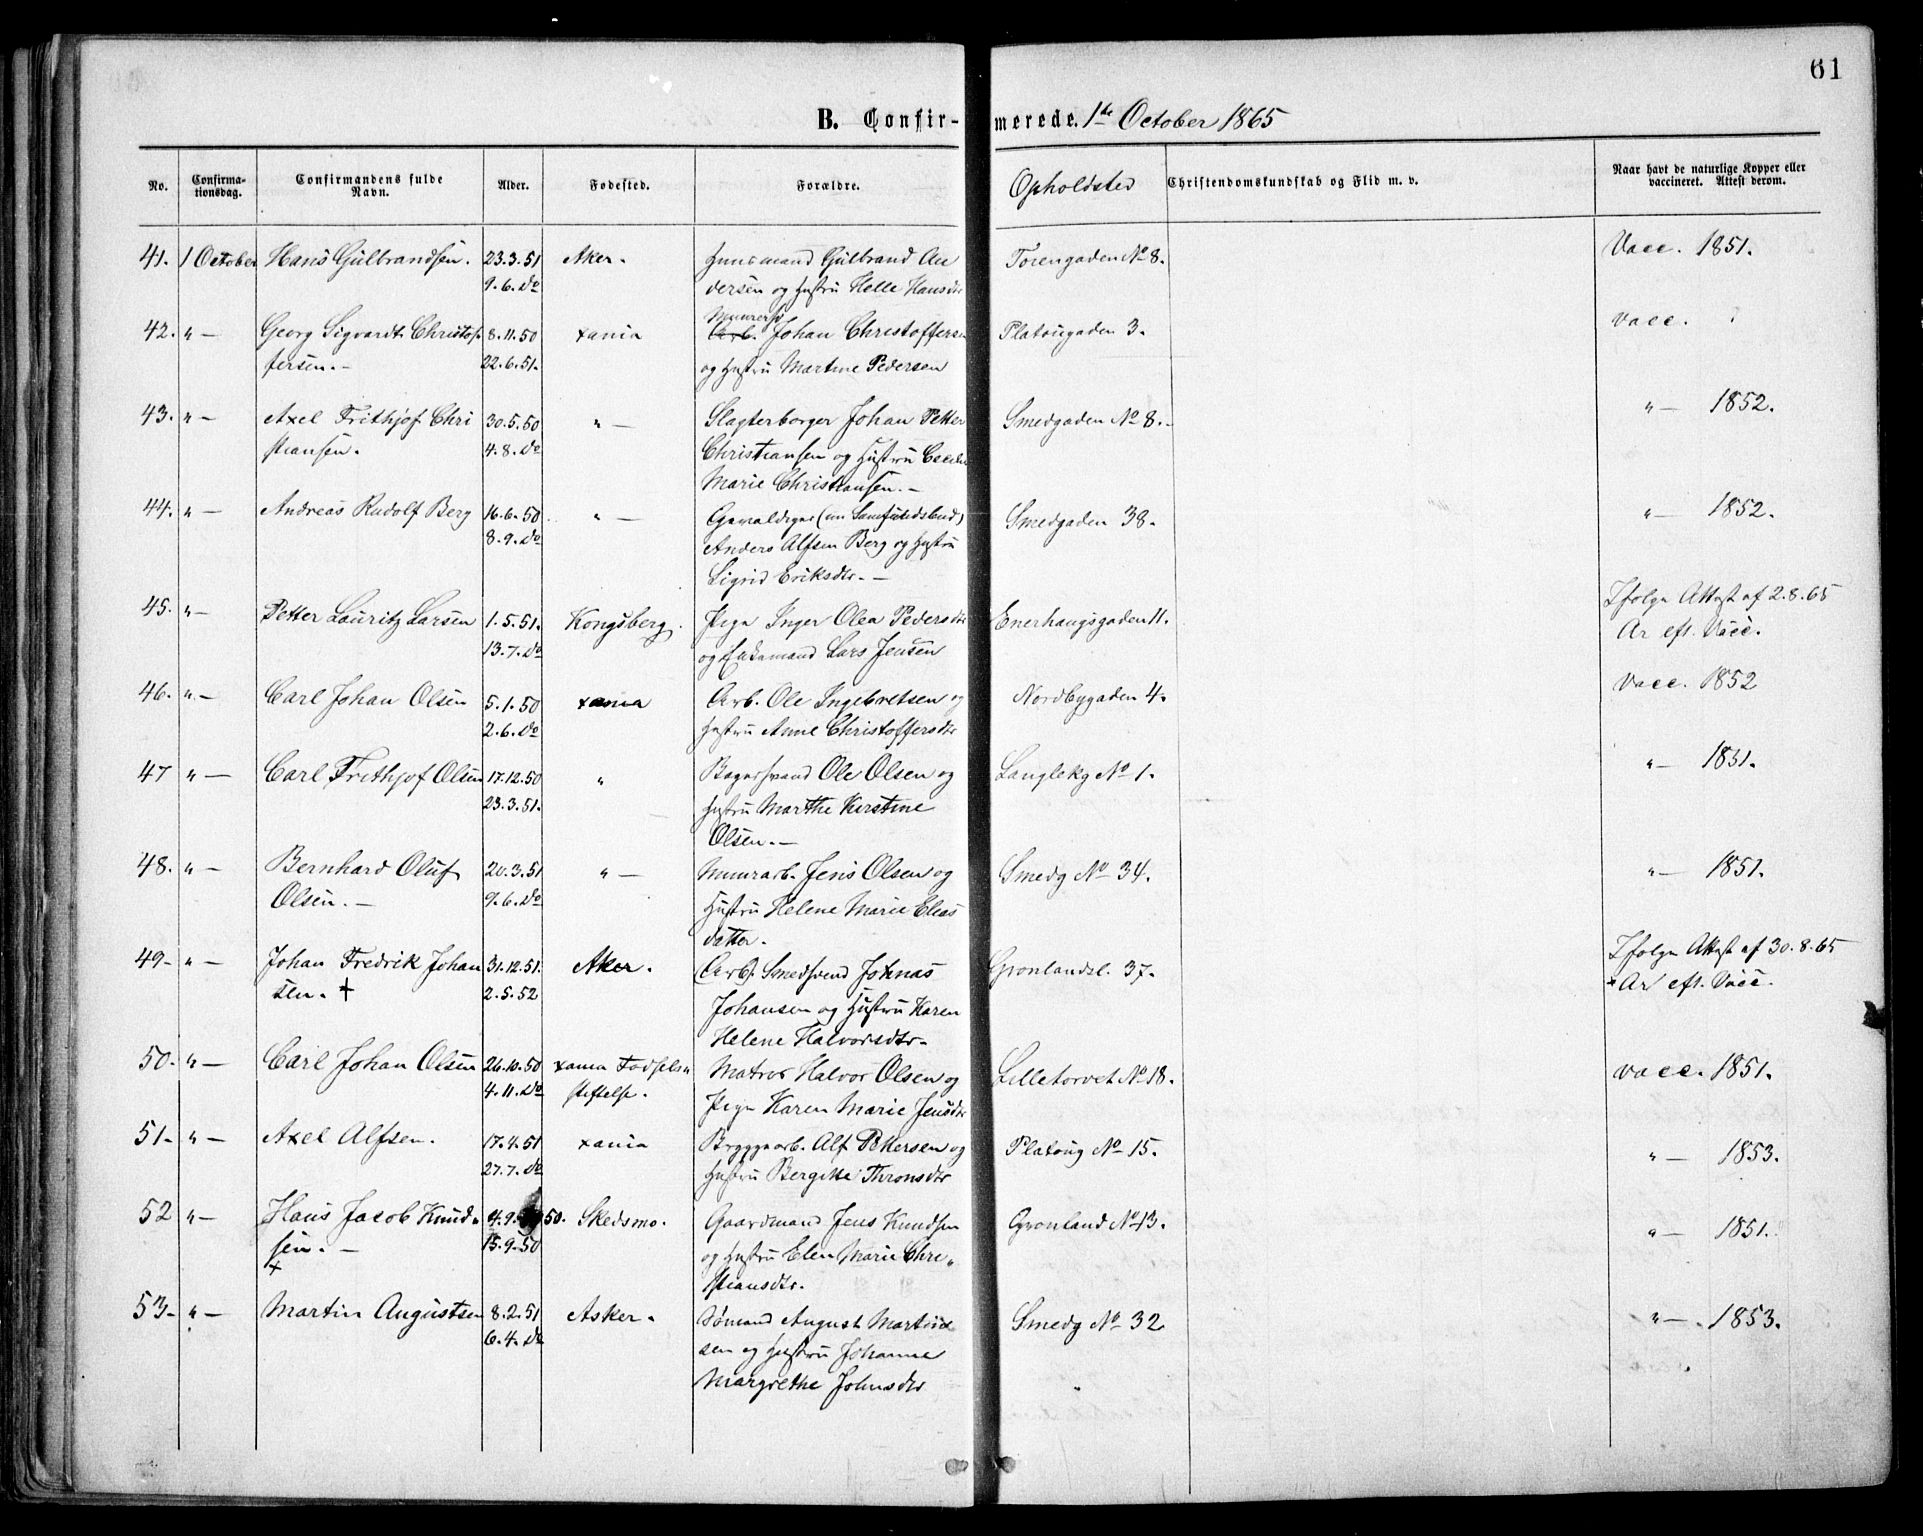 61
B. Confirmerede. 1ste October 1865
No. Confirmationsdag. Confirmandens fulde Navn. Alder. Fødested. Forældre. Opholdsted Christendomskundskab og Flid m. v. Naar havt de naturlige Kopper eller vaccineret. Attest derom.
41. 1 October Hans Gulbrandsen. 23.3.51 Aker. Huusmand Gulbrand An Torengaden No 8. Vacc. 1851.
9.6. do dersen og Hustru Helle Hansdtr
Muurersv
42. " — Georg Sigvardt Christof 8.11.50 xania Arb. Johan Christoffersen Platougaden 3. Vacc.
fersen. — 22.6.51. og Hustru Martine Pedersen
43. " — Axel Frithjof Chri 30.5.50 " — Slagterborger Johan Petter Smedgaden No 8. " — 1852.
stiansen. 4.8. do Christiansen og Hustru
Marie Christiansen. —
44. " — Andreas Rudolf Berg 16.6.50 " — Smedgaden 38. " — 1852.
8.9. do Anders Alfsen Berg og Hustru
Sigrid Eriksdtr. —
45. " — Petter Lauritz Larsen 1.5.51. Kongsberg. Pige Inger Olea Pedersdtr Enerhaugsgaden 11. Ifølge Attest af 2.8.65
13.7. do og Enkemand Lars Jensen Ar eft. Vacc.
46. " — Carl Johan Olsen 5.1.50 xania Arb. Ole Ingebretsen og Nordbygaden 4. Vacc. 1852
2.6. do Hustru Anne Christoffersdtr
47 " — Carl Frithjof Olsen 17.12.50 " Bagersvend Ole Olsen og Langlekg No 1. " — 1851.
23.3.51. Hustru Marthe Kirstine
Olsen. —
48. " — Bernhard Oluf 20.3.51 " — Muurarb. Jens Olsen og Smedg No 34. " — 1851.
Olsen. — 9.6. do Hustru Helene Marie Elias
datter.
49 - " — Johan Fredrik Johan 31.12.51. Aker. Arb. Smedsvend Johnas Grønlandsl. 37. Ifølge Attest af 30.8.65
sen. + 2.5.52 Johansen og Hustru Karen + Ar eft. Vacc.
Helene Halvorsdtr.
50. " — Carl Johan Olsen 26.10.50 xania Fødsels" Matros Halvor Olsen og Lilletorvet No 18. Vacc. 1851.
4.11. do stiftelse. Pige Karen Marie Jensdtr
51 - " — Axel Alfsen. 17.4.51 xania Bryggearb. Alf Pettersen og Platoug No 15. " — 1853.
27.7. do Hustru Bergitte Thronsdtr
52 " — Hans Jacob Knud" 4.9. 50. Skedsmo. Gaardmand Jens Knudsen Grønland No 13. " — 1851.
sen. — 15.9.50 og Hustru Elen Marie Chri"
+ stiansdtr.
53 - " — Martin Augustsen 8.2.51 Asker. Sømand August Martin Smedg No 32 " — 1853.
6.4. do sen og Hustru Johanne
Margrethe Johnsdtr